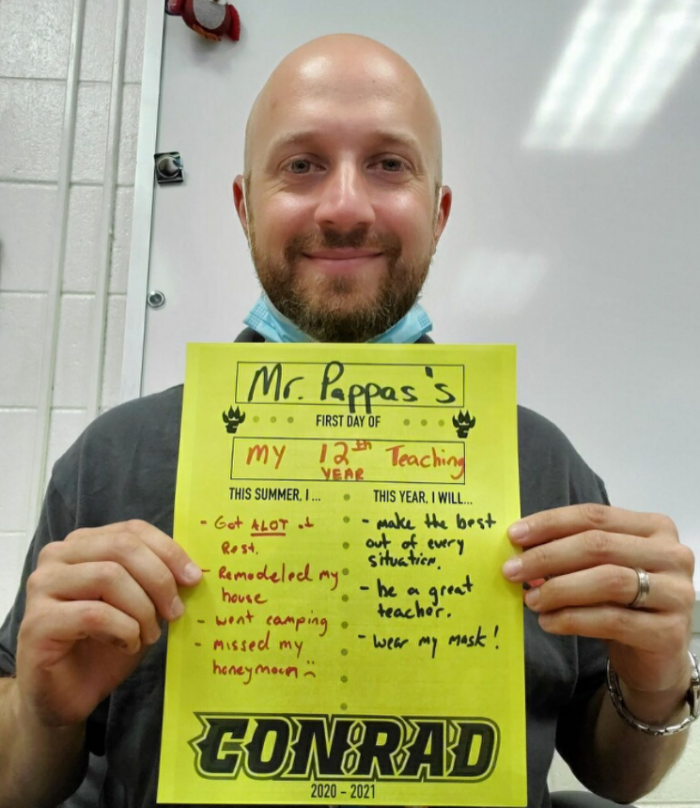 Mr. Pappas's
FIRST DAY OF
MY 12th Teaching
YEAR
THIS SUMMER, I ...
- Got ALOT of
Rest.
- Remodeled my
house
- went camping
- missed my
honeymoon :(
THIS YEAR, I WILL...
- make the best
out of every
situation.
- be a great
teacher.
- wear my mask!
CONRAD
2020 - 2021